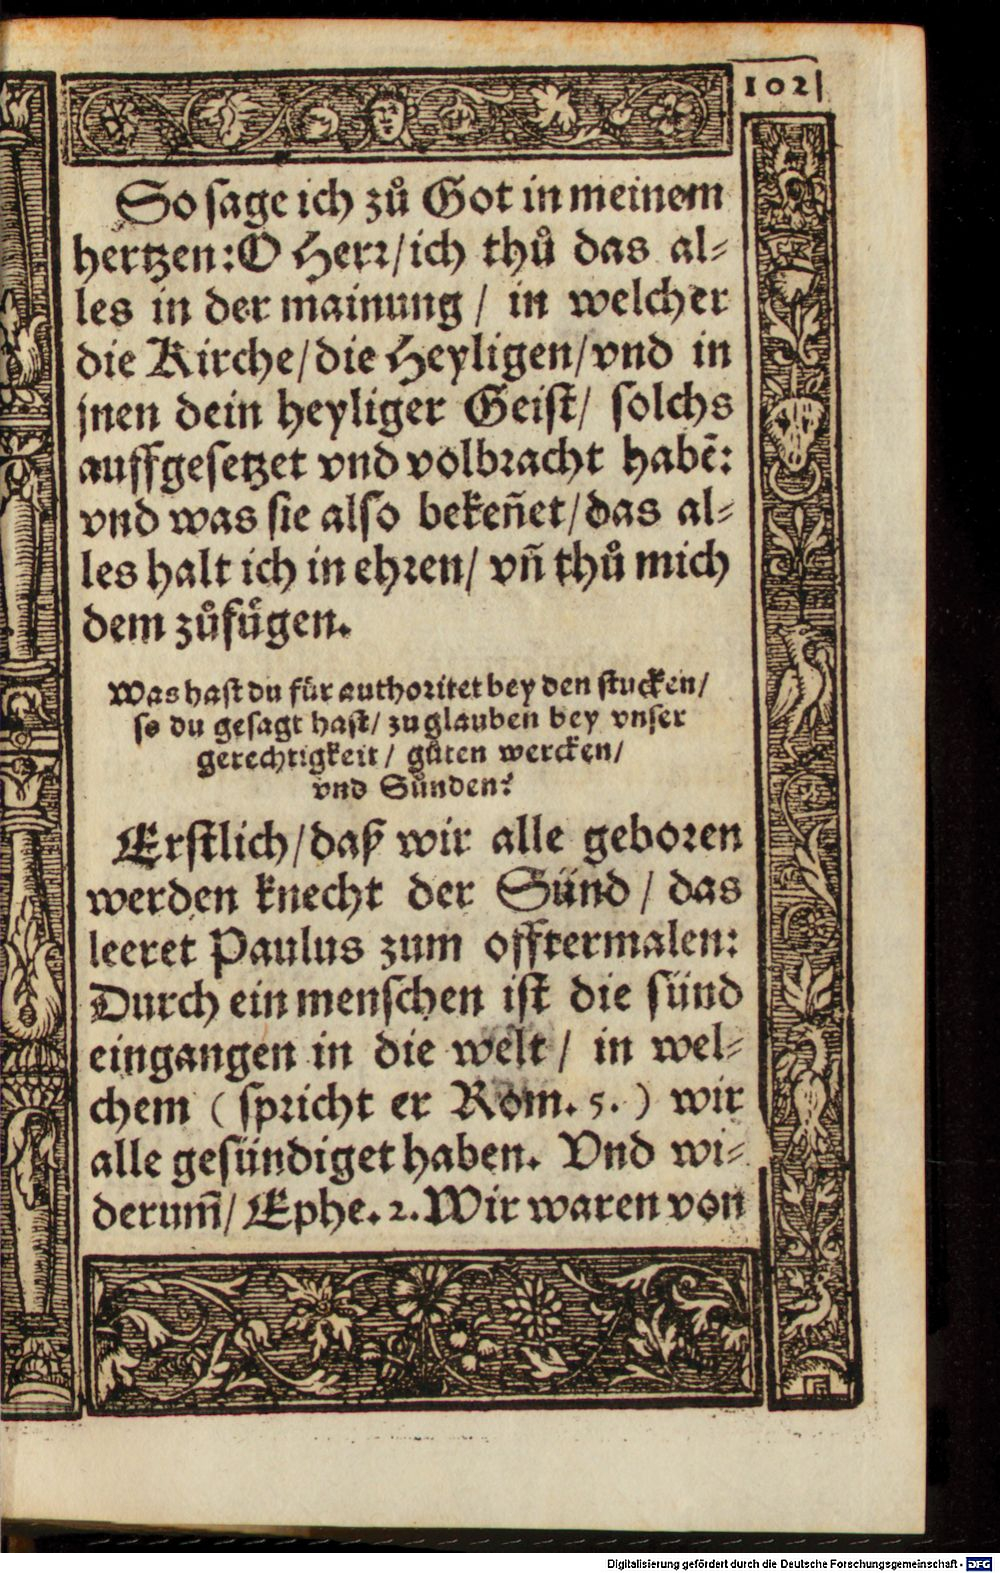 102
So sage ich zů Got in meinem
hertzen: O Herr/ ich thů das al⸗
les in der mainung / in welcher
die Kirche/ die Heyligen/ vnd in
jnen dein heyliger Geist/ solchs
auffgesetzet vnd volbracht habẽ:
vnd was sie also bekeñet/ das al⸗
les halt ich in ehren/ vñ thů mich
dem zůfuͤgen.
Was hast du für authoritet bey den stucken/
so du gesagt hast/ zu glauben bey vnser
gerechtigkeit / gůten wercken/
vnd Sünden?
Erstlich/ daß wir alle geboren
werden knecht der Sünd / das
leeret Paulus zum offtermalen:
Durch ein menschen ist die sünd
eingangen in die welt / in wel⸗
chem ( spricht er Rom. 5. ) wir
alle gesündiget haben. Vnd wi⸗
derum̃/ Ephe. 2. Wir waren von
Digitalisierung gefördert durch die Deutsche Forschungsgemeinschaft - DFG